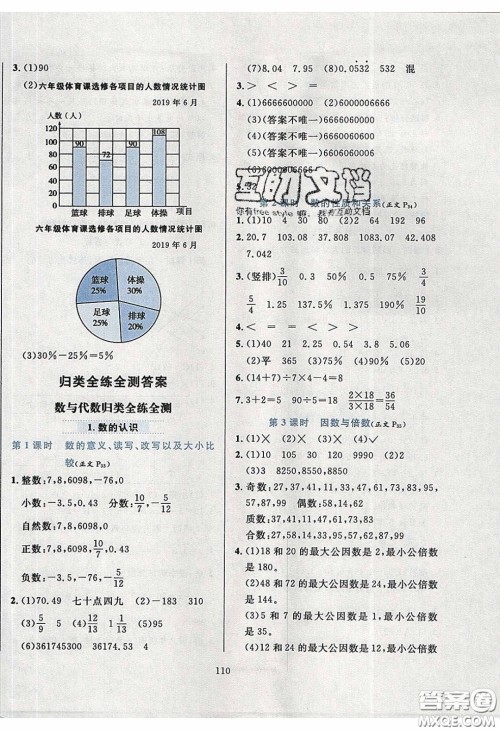 3.(1)90
(2)六年级体育课选修各项目的人数情况统计图
2019年6月
人数(人)
120
100
80
60
40
20
0
90
72
90
108
篮球 排球 足球 体操 项目
六年级体育课选修各项目的人数情况统计图
2019年6月
篮球 25%
体操 30%
足球 25%
排球 20%
(3)30%-25%=5%
归类全练全测答案
数与代数归类全练全测
1.数的认识
第1课时 数的意义、读写、改写以及大小比
较(正文P32)
1.整数:7,8,6098,-76,0
小数:-3.5,0.43 分数:10/7,-5/12
自然数:7,8,6098,0
正数:7,8,6098,0.43,10/7
负数:-3.5,-76,-5/12
2.(1)70.49 七十点四九 (2)-183 310
(3)5/9 5 (4)5/13 13 (5)9 145
(6)361745300 36174.53 4
(7)8.04 7.95 532 混
3.> < > = >
4.(1)6666600000 (2)6000006666
(3)(答案不唯一)6666606000
(4)(答案不唯一)6066606600
(5)(答案不唯一)6660006660
(6)6000006666
5.32
互助文档
你有free style嘛,我有互助文档
第2课时 数的性质和关系(正文P34)
1.(1)20 4.107 1035 108.30
7.042
3.(竖排)3/10 0.3 0.24 24%
5/4 1.25 3/2 150% 1.9 190% 19/10
4.> < = < > >
5.(1)40 15 0.25 2.5 0.54 0.38
6.(2)平 365 (3)闰 366
7.3+2=5 9×2=18 (2×18)/(3×18)=36/54
第3课时 因数与倍数(正文P35)
1.√ √ × × √
2.(1)3 (2)5 (3)8550 (4)8850
3.奇数:27,37,41,57,53,87,61,95,99,13
偶数:58,14,62
质数:37,41,53,61,13
合数:27,58,14,33,57,95,62,87,99
4.(1)18和20的最大公因数是2,最小公倍数
是180。
(2)48和72的最大公因数是24,最小公倍数
是144。
(3)5和7的最大公因数是1,最小公倍数
是35。
(4)12和24的最大公因数是12,最小公倍
110
答案圈
MXQE.COM